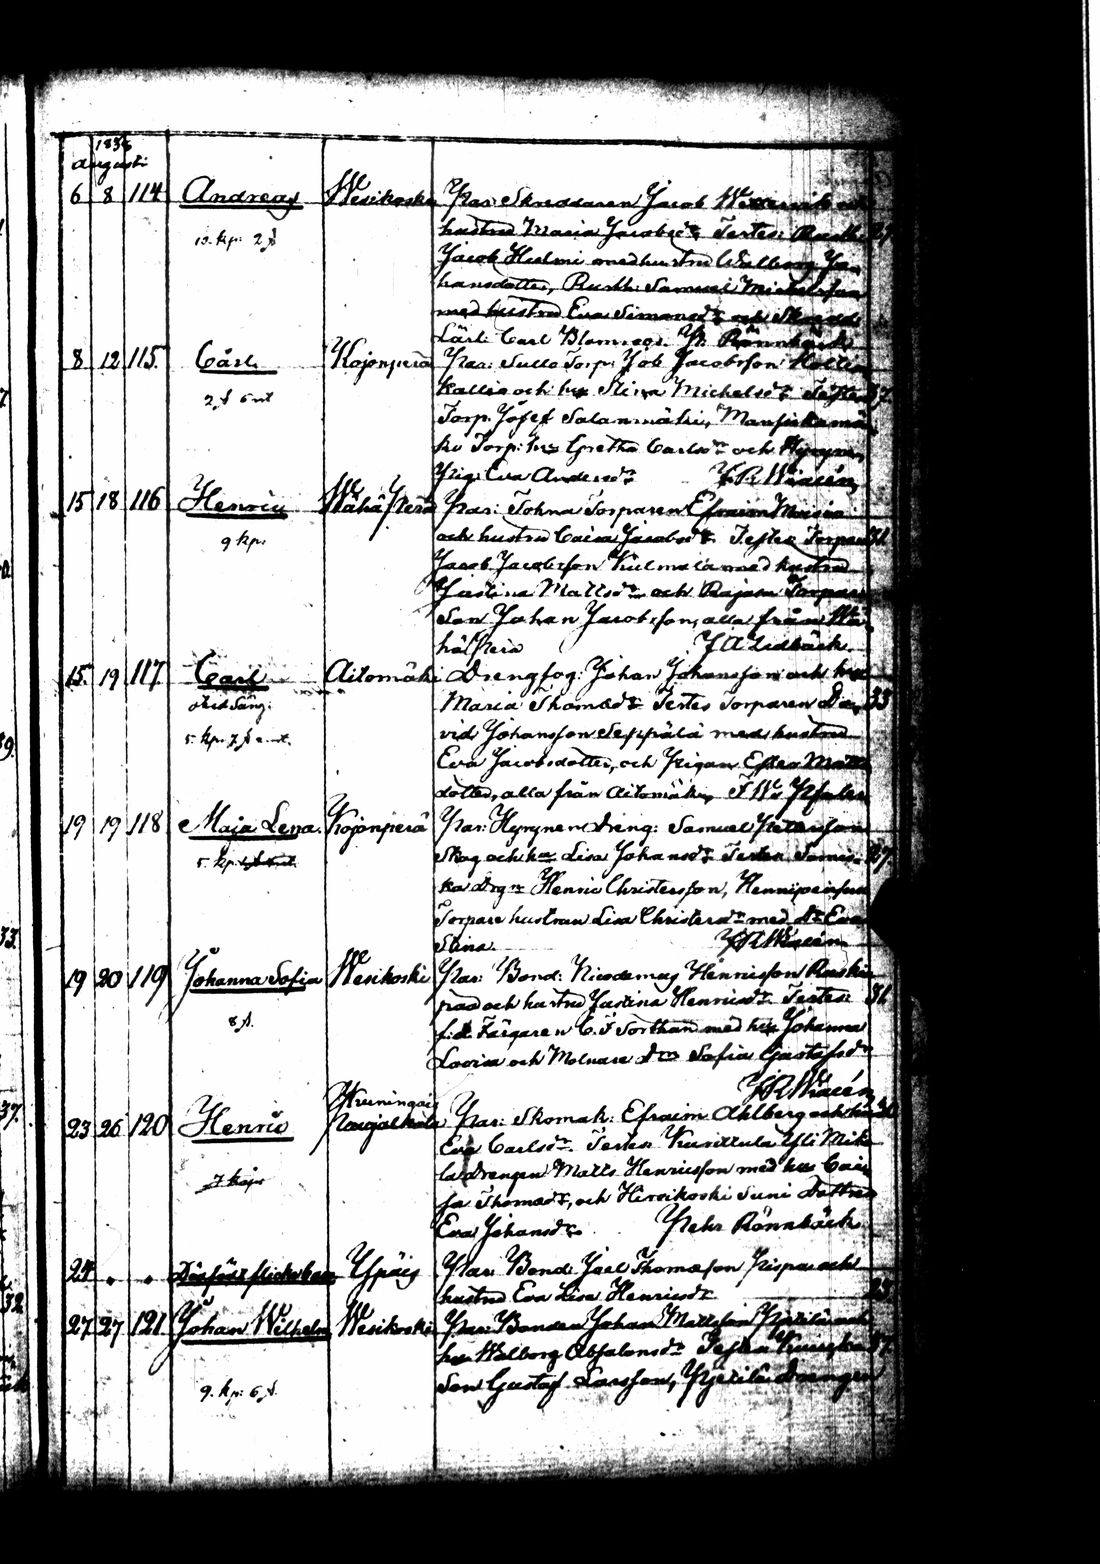 1836
Augusti
6 8 114 Andreas Wesikoski Par: Skreddaren Jacob och
10. kp: 2 f hustru Maria Jacobsdr Testes: Rusth:
Jacob Hulmi med hustru Walborg Jo-
hansdotter, Rusth: Samuel Michelsson
med hustru Eva Simonsdr och Skredd
Lärl: Carl Blomros. P. Rönnbäck
8 12 115. Carl Kojonperä Par: Sullo Torp: Job Jacobsson
2 f 6 nt kallio och hu Stina Michelsdr Testes 37.
Torp. Josef Salanmäki, Mansikamä
ki Torp: hu Gretha Carlsdr och Hyrynen
Pig: Eva Andersdr F R Wincén
15 18 116 Henric Wähä Perä Par: Tohna Torparen Efraim
9 kp. och hustru Caisa Jacobsdr Testes Torpar 31
Jacob Jacobsson Kulmala med hustru
Justina Mattsdr och Rajam Torpare
Son Johan Jacobsson, alla från Wä
hä Perä J A Lidbäck
15. 19 117. Carl Aitomäki Drengfog: Johan Johansson och hu
5. kp. 7 f Maria Thomasdr Testes Torparen Da- 33
vid Johansson Seppälä med hustru
Eva Jacobsdotter, och Pigan Matts
dotter, alla från Aitomäki, F. W.
19 19 118 Maja Lena. Kojonperä Par: Hyrynen Dreng: Samuel Pettersson
5. kp. Skog och hu Lisa Johansdr Testes 27.
ka Drgn Henric Christersson,
Torpare hustrun Lisa Christersdr med Dr Eva
Stina. F R Wincén
19 20 119 Johanna Sofia Wesikoski Par: Bond: Nicodemus Henricsson Ruski
8 f. pää och hustru Justina Henricsdr Testes: 31
f.d. Färgaren C. F Sorthan med hu Johanna
Lovisa och Molnare Dr Sofia Gustafsdr
F R Wincén
23 26 120 Henric Par: Skomak: Efraim Ahlberg och hu
7 kop. Eva Carlsdr. Testes Kurittula Yli Mik
la drengen Matts Henricsson med hu Cai
sa Thomasdr, och Hirsikoski Suni Dottren
Eva Johansdr Pehr Rönnbäck
24 " " Dödfödt flickebarn Ypäis Par: Bond Joel Thomasson och
hustru Eva Lisa Henricsdr 23
27 27 121 Johan Wilhelm Wesikoski Par: Bonden Johan Mattsson och
9. kp: 6 f. hu Walborg Absalonsdr Testes 37.
Son Gustaf Larsson, Drengen